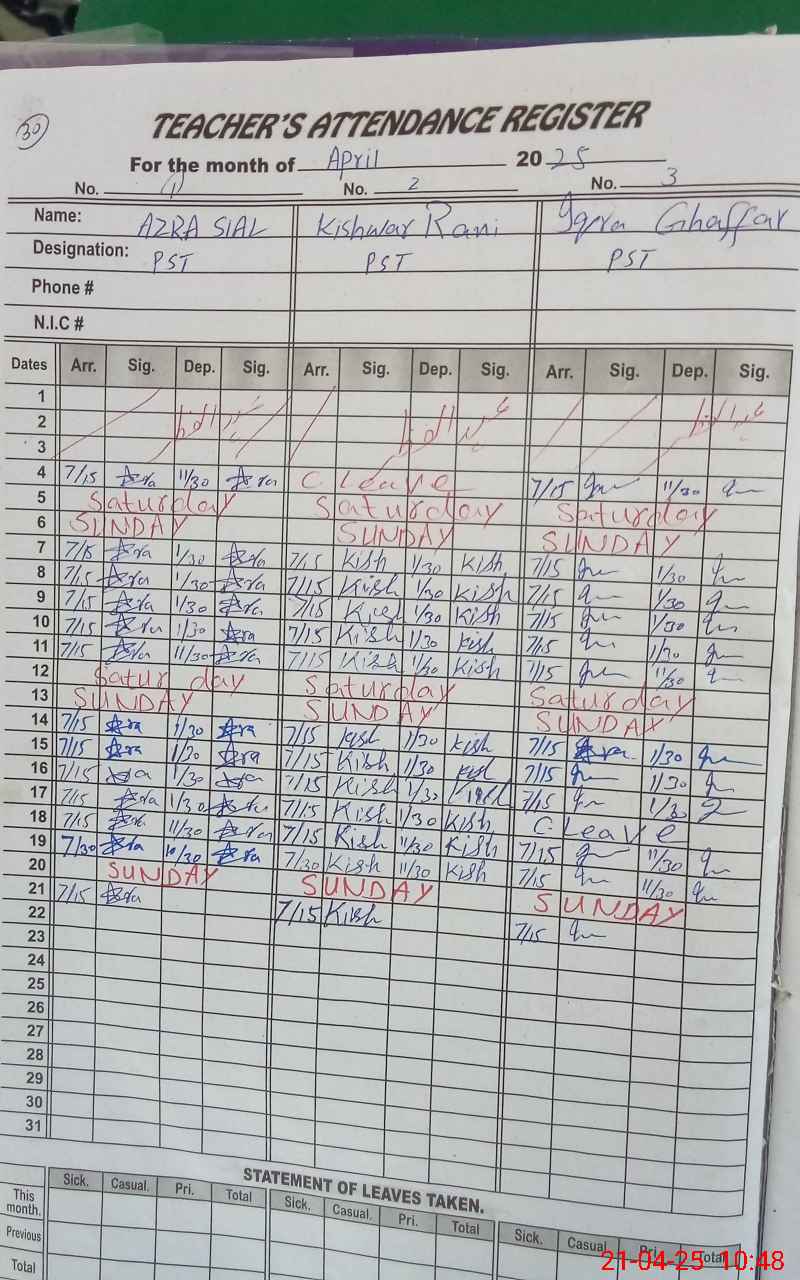 30
TEACHER'S ATTENDANCE REGISTER
For the month of April 2025
No. 1 No. 2 No. 3
Name: AZRA SIAL Kishwar Rani Iqra Ghaffar
Designation: PST PST PST
Phone #
N.I.C #
Dates Arr. Sig. Dep. Sig. Arr. Sig. Dep. Sig. Arr. Sig. Dep. Sig.
1
2 عید الفطر عید الفطر عید الفطر
3
4 7/15 Azra 11/30 Azra C. Leave 7/15 11/30
5 Saturday Saturday Saturday
6 SUNDAY SUNDAY SUNDAY
7 7/15 Azra 1/30 Azra 7/15 Kish 1/30 Kish 7/15 1/30
8 7/15 Azra 1/30 Azra 7/15 Kish 1/30 Kish 7/15 1/30
9 7/15 Azra 1/30 Azra 7/15 Kish 1/30 Kish 7/15 1/30
10 7/15 Azra 1/30 Azra 7/15 Kish 1/30 Kish 7/15 1/30
11 7/15 Azra 11/30 Azra 7/15 Kish 11/30 Kish 7/15 11/30
12 Saturday Saturday Saturday
13 SUNDAY SUNDAY SUNDAY
14 7/15 Azra 1/30 Azra 7/15 Kish 1/30 Kish 7/15 1/30
15 7/15 Azra 1/30 Azra 7/15 Kish 1/30 Kish 7/15 1/30
16 7/15 Azra 1/30 Azra 7/15 Kish 1/30 Kish 7/15 1/30
17 7/15 Azra 1/30 Azra 7/15 Kish 1/30 Kish C. Leave
18 7/15 Azra 11/30 Azra 7/15 Kish 11/30 Kish 7/15 11/30
19 7/30 Azra 10/30 Azra 7/30 Kish 11/30 Kish 7/15 11/30
20 SUNDAY SUNDAY SUNDAY
21 7/15 Azra 7/15 Kish 7/15
22
23
24
25
26
27
28
29
30
31
STATEMENT OF LEAVES TAKEN.
Sick. Casual. Pri. Total Sick. Casual. Pri. Total Sick. Casual Pri. Total
This month.
Previous
Total
21-04-25 10:48